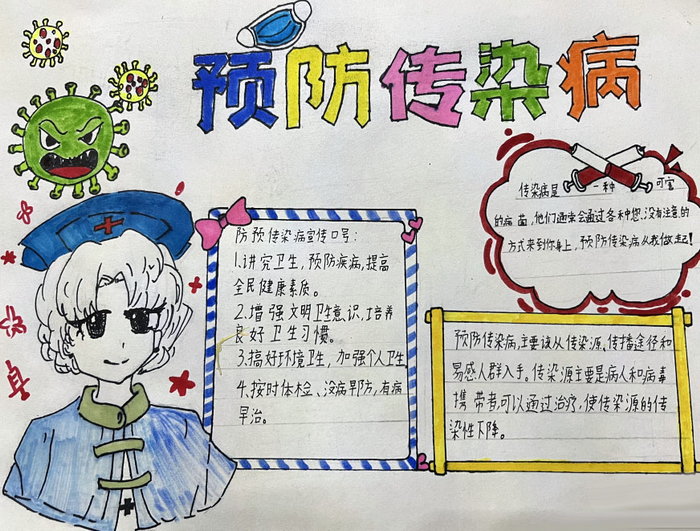 预防传染病
传染病是一种可害
的病菌,他们通常会通过各种您没有注意的
方式来到你身上,预防传染病从我做起!
防预传染病宣传口号:
1.讲究卫生,预防疾病,提高
全民健康素质。
2.增强文明卫生意识,培养
良好卫生习惯。
3.搞好环境卫生,加强个人卫生
4、按时体检、没病早防,有病
早治。
预防传染病,主要该从传染源、传播途径和
易感人群入手。传染源主要是病人和病毒
携带者,可以通过治疗,使传染源的传
染性下降。